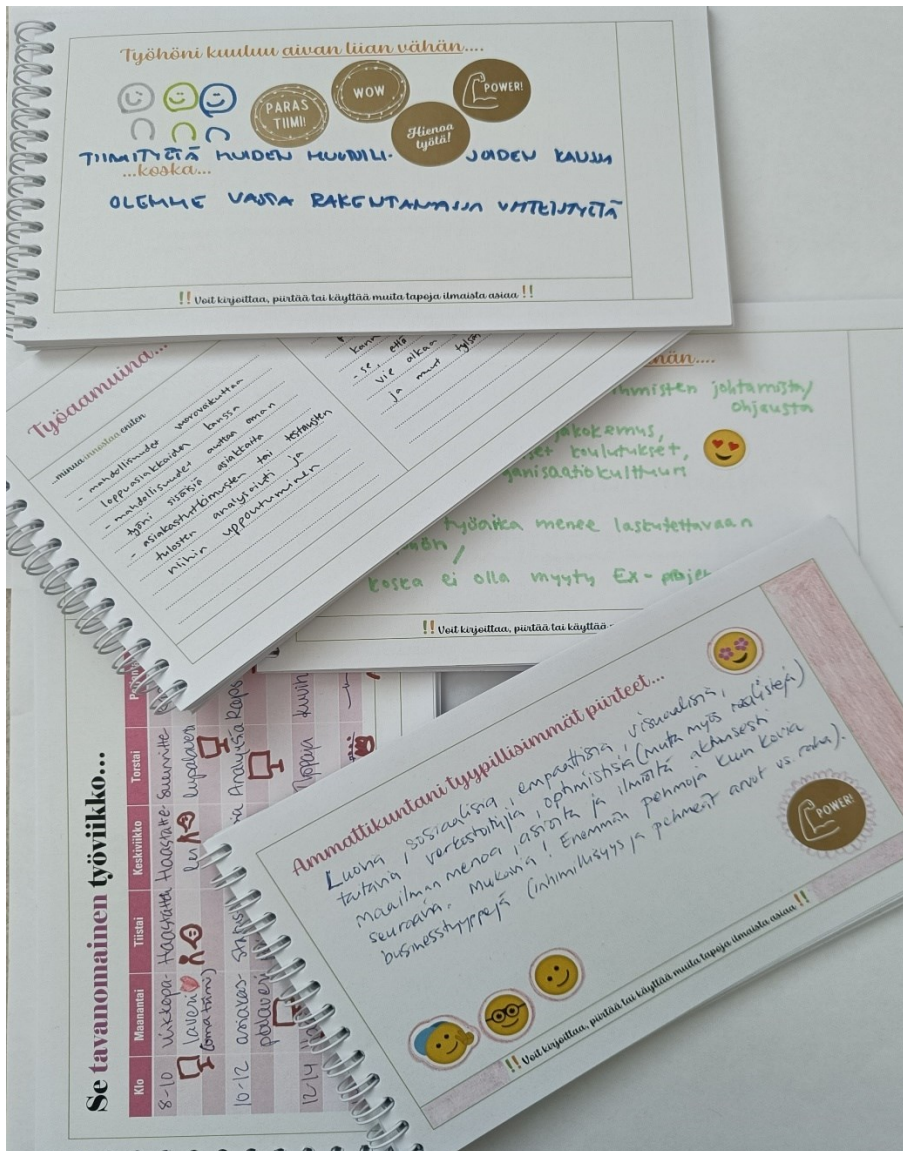 Työhöni kuuluu aivan liian vähän....
PARAS
TIIMI!
WOW
Hienoa
työtä!
POWER!
TIIMITYÖTÄ MUIDEN JOIDEN KANSSA
...koska...
OLEMME VASTA RAKENTAMASSA YHTEISTYÖTÄ
!! Voit kirjoittaa, piirtää tai käyttää muita tapoja ilmaista asiaa !!
Työaamuina...
...minua innostaa eniten
- mahdollisuudet vuorovaikuttaa
loppuasiakkaiden kanssa
- mahdollisuudet auttaa oman
työni sisäisiä asiakkaita
- asiakastutkimusten tai testausten
tulosten analysointi ja
niihin uppoutuminen
- se, että
vie aikaa
ja muut
hän....
ihmisten johtamista/
ohjausta
jakokemus,
koulutukset,
ganisaatiokulttuuri
työaika menee laskutettavaan
koska ei olla myyty EX-
!! Voit kirjoittaa, piirtää tai käyttää
Se tavanomainen työviikko...
Klo
Maanantai
Tiistai
Keskiviikko
Torstai
8-10
viikkopa-
laveri
(oma tiimi)
Haastatte
Haastatte
10-12
asiakas-
palaveri
12-14
Ammattikuntani tyypillisimmät piirteet...
Luovia, sosiaalisia, empaattisia, visuaalisia,
taitavia verkostoitujia, optimistisia (muta myös realisteja)
maailman menoa, asioita ja ilmiöitä aktiivisesti
seuraavia. Mukavia! Enemmän pehmoja kuin kovia
businesstyyppejä (inhimillisyys ja pehmeät arvot vs. raha).
POWER!
!! Voit kirjoittaa, piirtää tai käyttää muita tapoja ilmaista asiaa !!